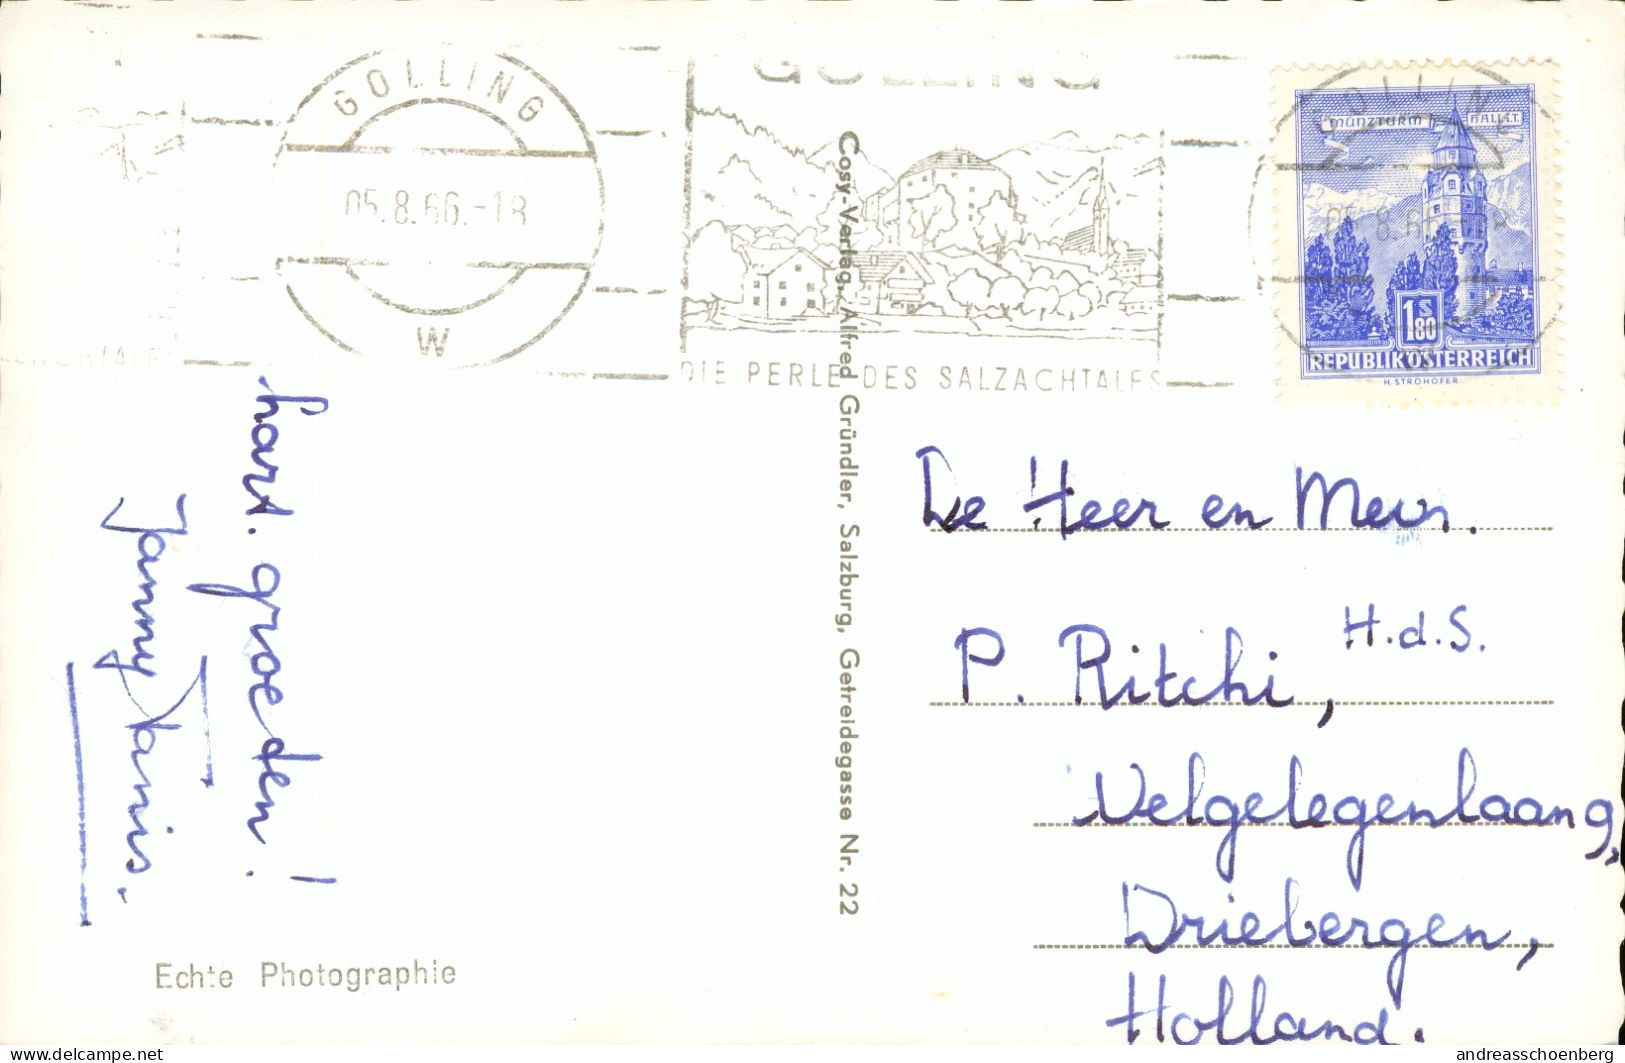 GOLLING
05.8.66.-18
W
GOLLING
DIE PERLE DES SALZACHTALES
MÜNZTURM HALL I.T.
1 S 80
REPUBLIK ÖSTERREICH
H. STROHOFER
hart. groeden!
Janny Tanis.
Cosy-Verlag, Alfred Gründler, Salzburg, Getreidegasse Nr. 22
De Heer en Mevr.
P. Ritchi, H.d.S.
Welgelegenlaang,
Driebergen,
Holland.
Echte Photographie
delcampe.net
andreasschoenberg